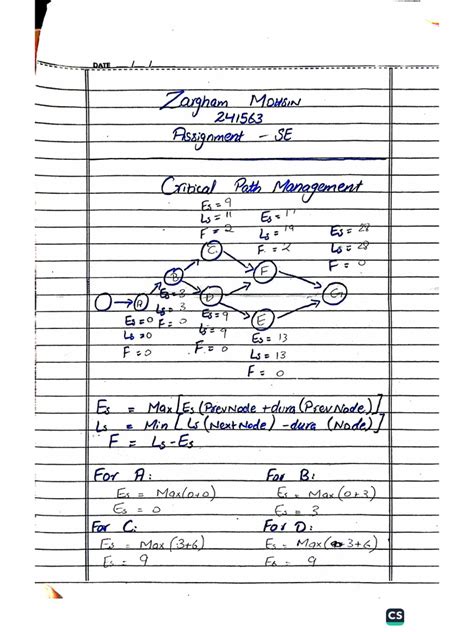 DATE __/__/__
Zargham Mohsin
241563
Assignment - SE
Critical Path Management
Es = 9
Ls = 11
F = 2
Ls = 19
F = 2
Es = 28
Ls = 28
F = 0
C
B
F
A
D
G
E
Es = 3
Ls = 3
F = 0
Es = 0
Ls = 0
F = 0
Es = 9
Ls = 9
F = 0
Es = 13
Ls = 13
F = 0
Es = Max [Es (PrevNode + dura (PrevNode)]
Ls = Min [Ls (NextNode) - dura (Node)]
F = Ls - Es
For A: For B:
Es = Max(0+0) Es = Max (0+3)
Es = 0 Es = 3
For C: For D:
Es = Max (3+6) Es = Max (3+6)
Es = 9 Es = 9
CS